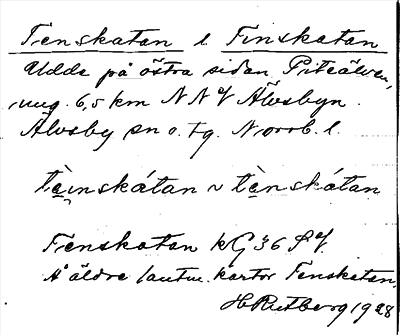 Tenskatan l Finskatan
Udde på östra sidan Piteälven,
ung. 6,5 km NNV Älvsbyn.
Älvsby sn o. tg. Norrb. l.
tèinskátan ~ tènskátan
Fenskatan kG 36 SV.
Å äldre lantm. kartor Fenskatan.
H Rutberg 1928